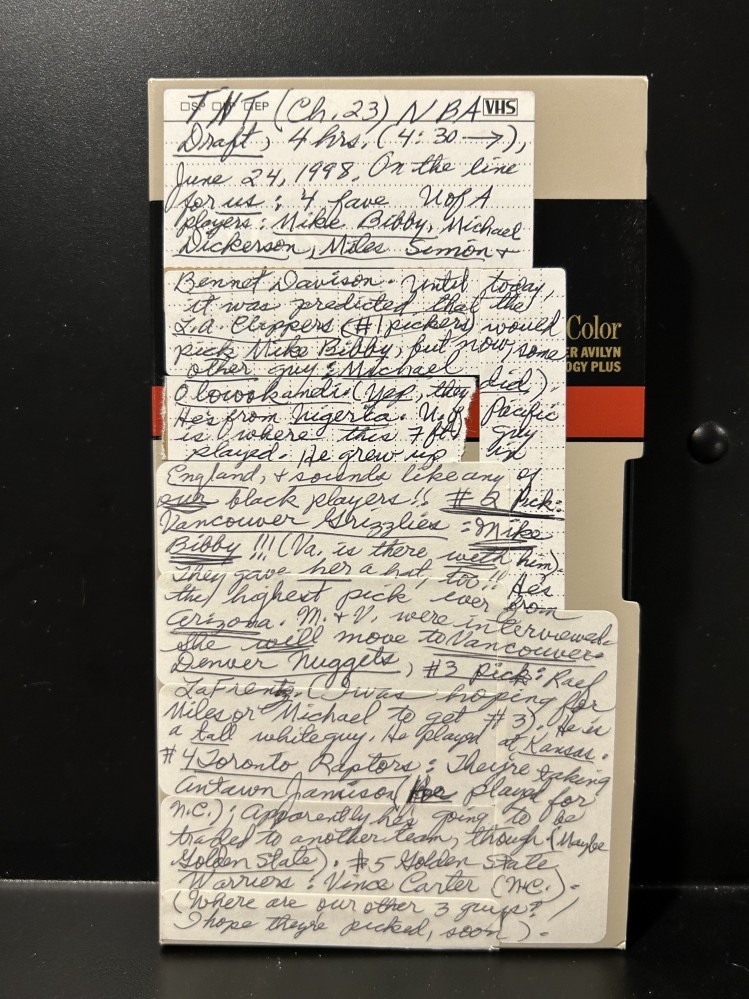 SP LP EP VHS
TNT (Ch. 23) NBA
Draft, 4 hrs. (4:30 →),
June 24, 1998. On the line
for us: 4 fave U of A
players: Mike Bibby, Michael
Dickerson, Miles Simon +
Bennet Davison. Until today,
it was predicted that the
L.A. Clippers (#1 pickers) would
Color
pick Mike Bibby, but now, some
ER AVILYN
other guy: Michael
OGY PLUS
Olowokandi. (Yep, they did).
He's from Nigeria. U. of Pacific
is where this 7 ft. guy
played. He grew up in
England, + sounds like any of
our black players!! #2 Pick:
Vancouver Grizzlies: Mike
Bibby!!! (Va. is there with him).
They gave her a hat, too!! He's
the highest pick ever from
Arizona. M. + V. were interviewed.
She will move to Vancouver.
Denver Nuggets, #3 pick: Raef
LaFrentz. (I was hoping for
Miles or Michael to get #3). He is
a tall white guy. He played at Kansas.
#4 Toronto Raptors: They're taking
Antawn Jamison (he played for
N.C.); apparently he's going to be
traded to another team, though (Maybe
Golden State). #5 Golden State
Warriors: Vince Carter (N.C.).
(Where are our other 3 guys?!
I hope they're picked, soon).